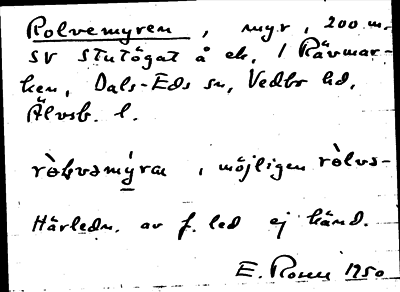 Rolvemyren, myr, 200 m.
SV Stutögat å ek. / Rävmar-
ken, Dals-Eds sn, Vedbo hd,
Älvsb. l.
ròɫvəmýra, möjligen ròlvs-
Härledn. av f. led ej känd.
E. 1950